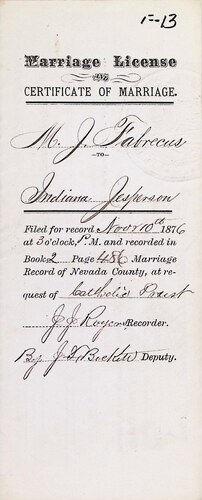 F-13
Marriage License
OR
CERTIFICATE OF MARRIAGE.
M. J. Fabrecus
—TO—
Indiana Jesperson
Filed for record Novr 10th 1876
at 3 o'clock, P.M. and recorded in
Book 2 Page 486 Marriage
Record of Nevada County, at re-
quest of Catholic Priest
J. J. Rogers Recorder.
By J. F. Beckett Deputy.